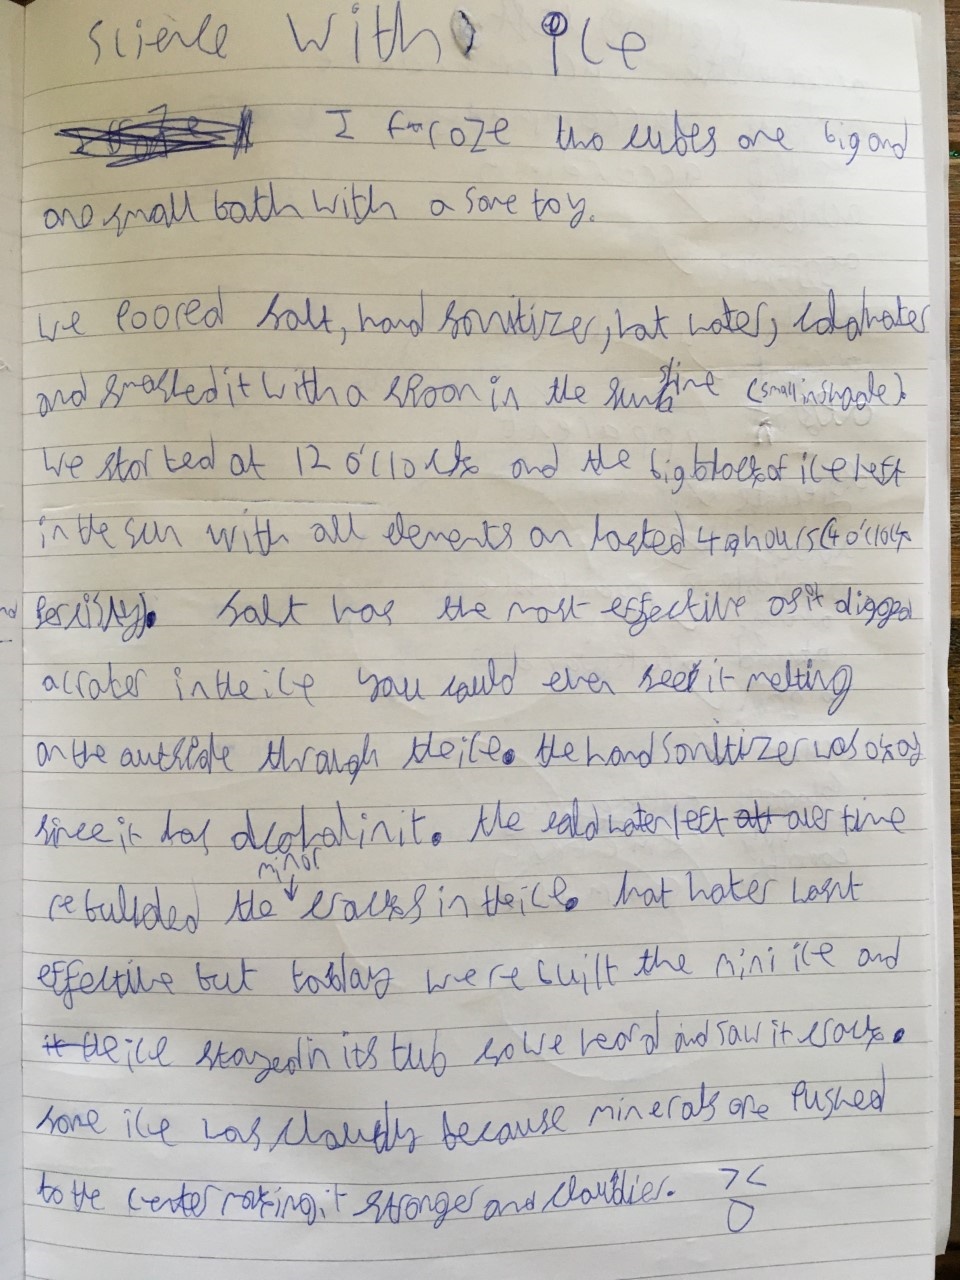 Science With ice
I froze two cubes one big and
one small both with a some toy.
We poored salt, hand sonitizer, hot water, coldwater
and smashed it with a spoon in the sunshine (small in shade).
We started at 12 o'clocks and the big block of ice left
in the sun with all elements on lasted 4 hours (4 o'clock
Salt was the most effective as it digged
a crater in the ice you could even see it melting
on the outside through the ice. the hand sonitizer was okay
since it has alcohol in it. the cold water left over time
rebuilded the minor cracks in the ice. hot water wasnt
effective but today we rebuilt the mini ice and
the ice stayed in its tub so we heard and saw it crack.
some ice was cloudy because minerals are pushed
to the center making it stronger and cloudier. ><